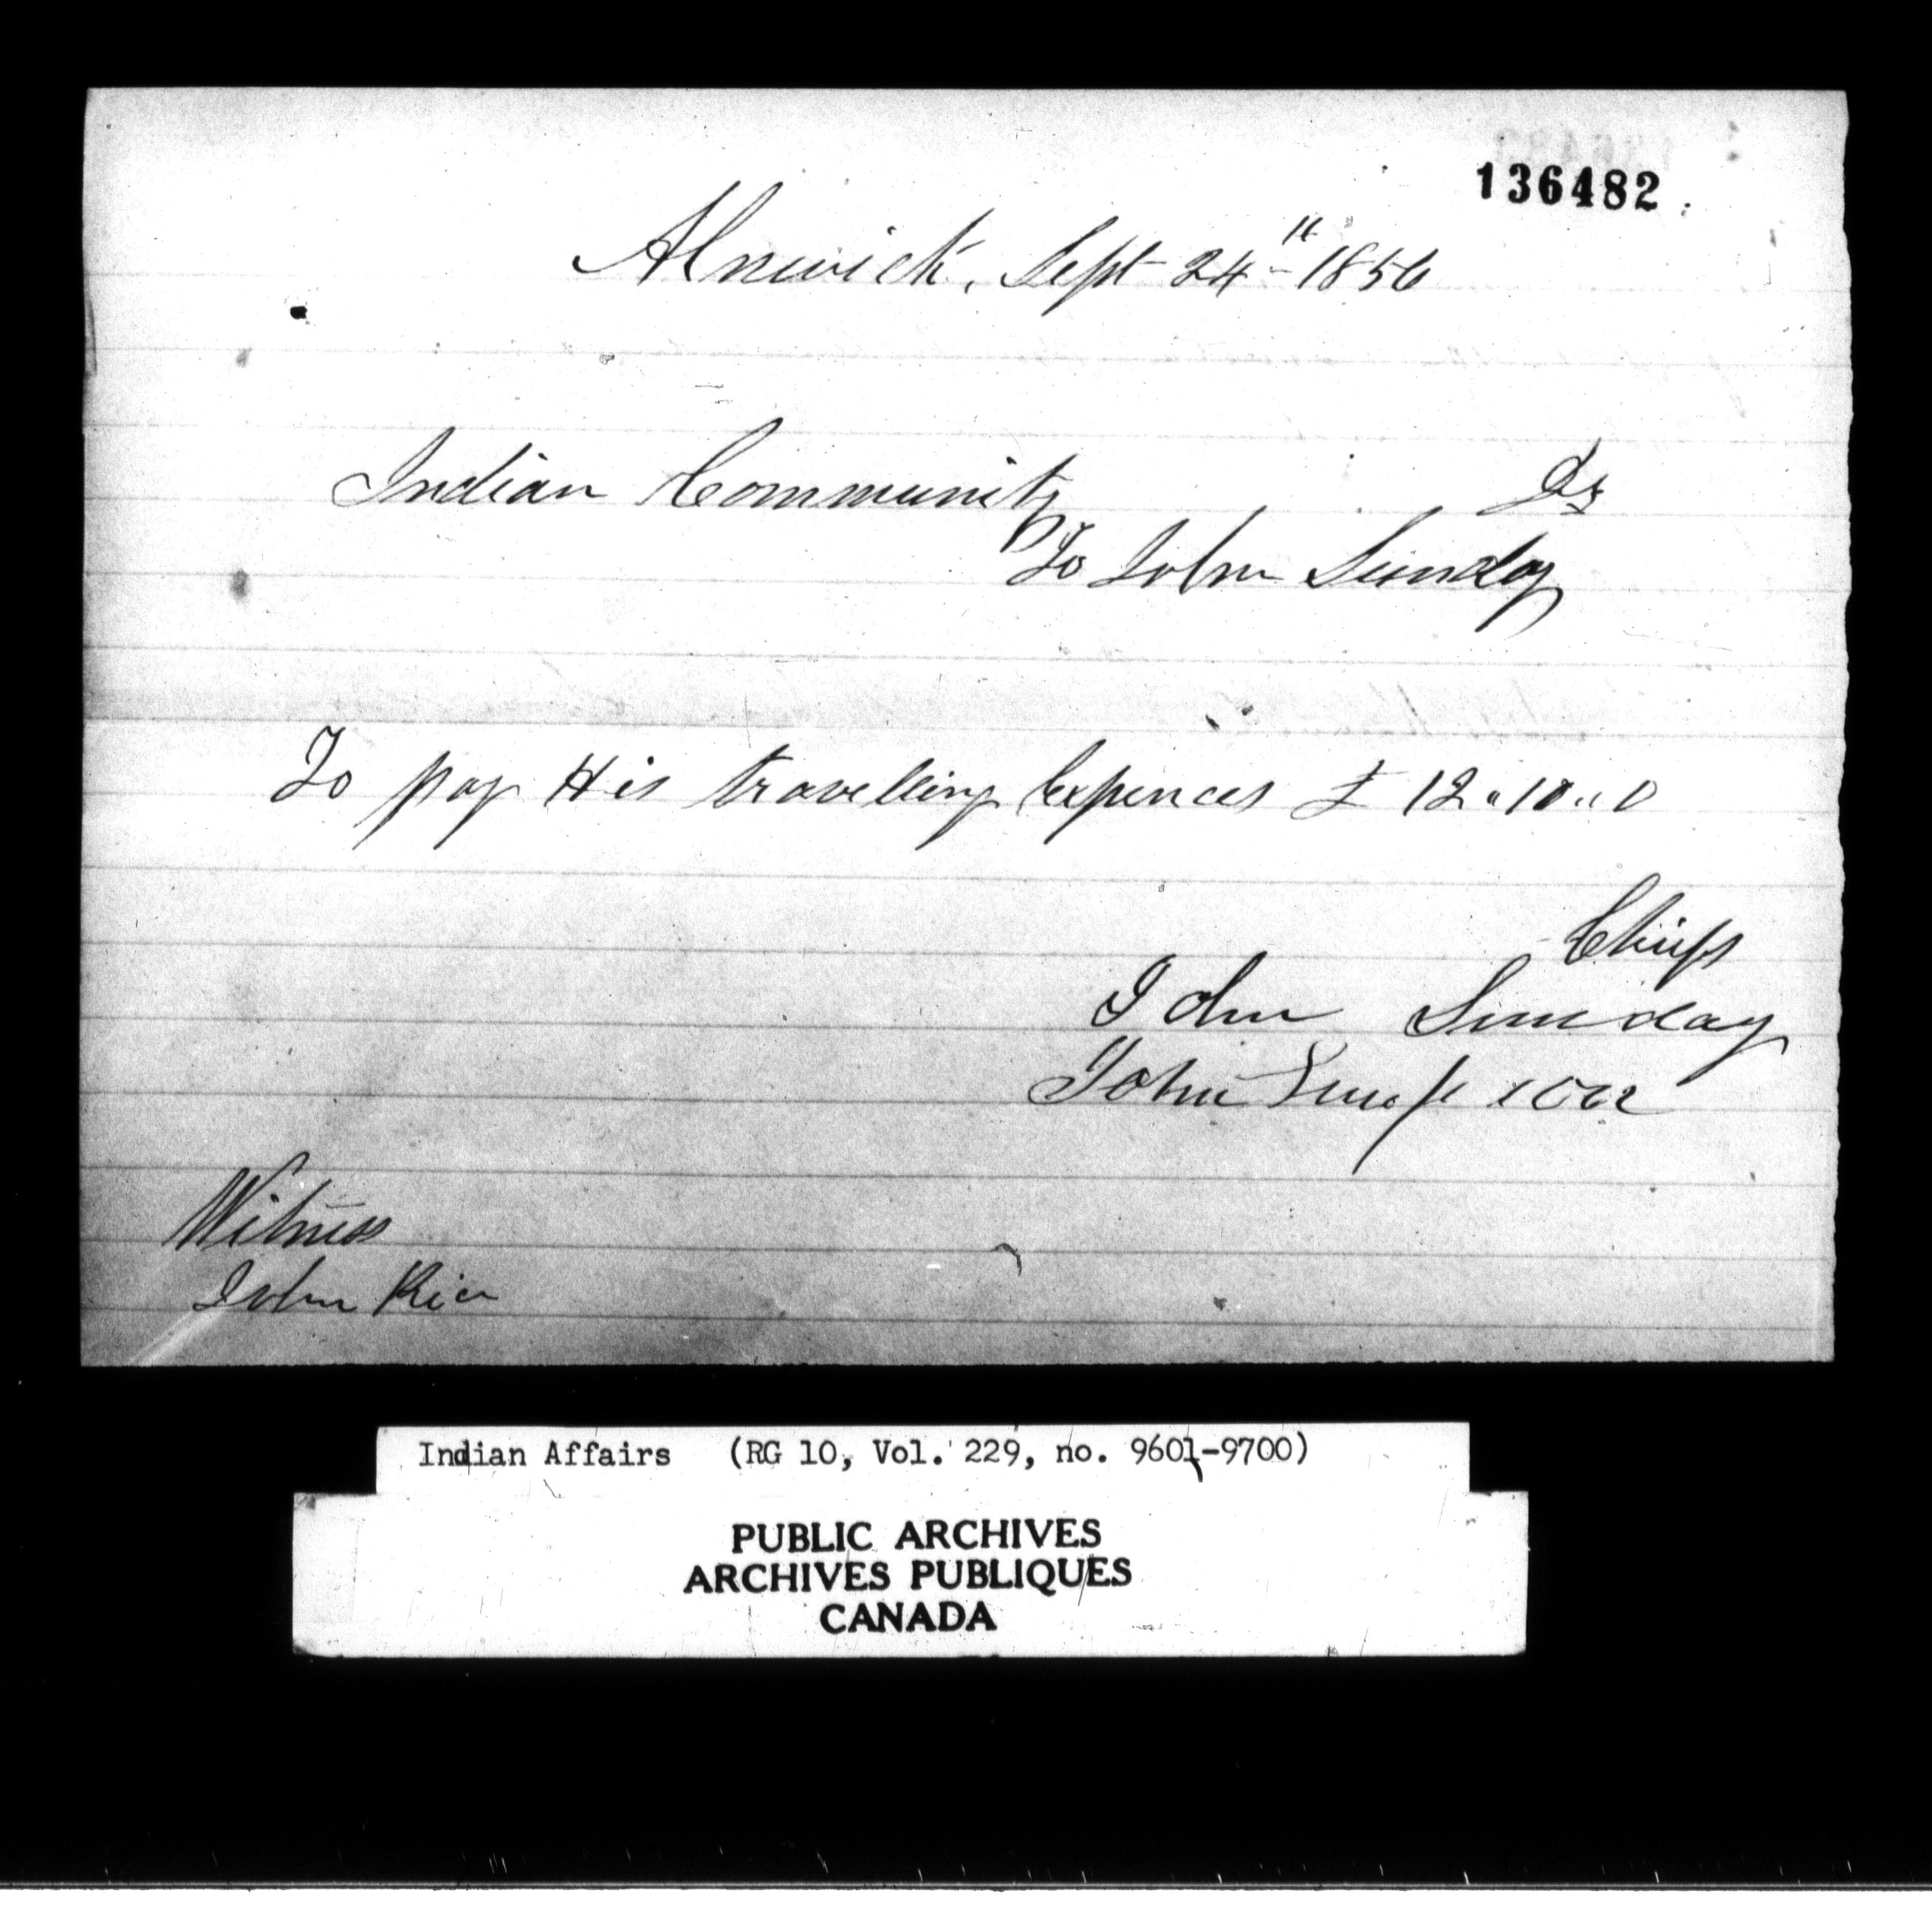 136482
Alnwick, Sept 24th 1856
Indian Community Dr
To John Sunday
To pay His travelling Expences £ 12"10"0
Chiefs
John Sunday
John Simpson
Witness
John Rice
Indian Affairs (RG 10, Vol. 229, no. 9601-9700)
PUBLIC ARCHIVES
ARCHIVES PUBLIQUES
CANADA